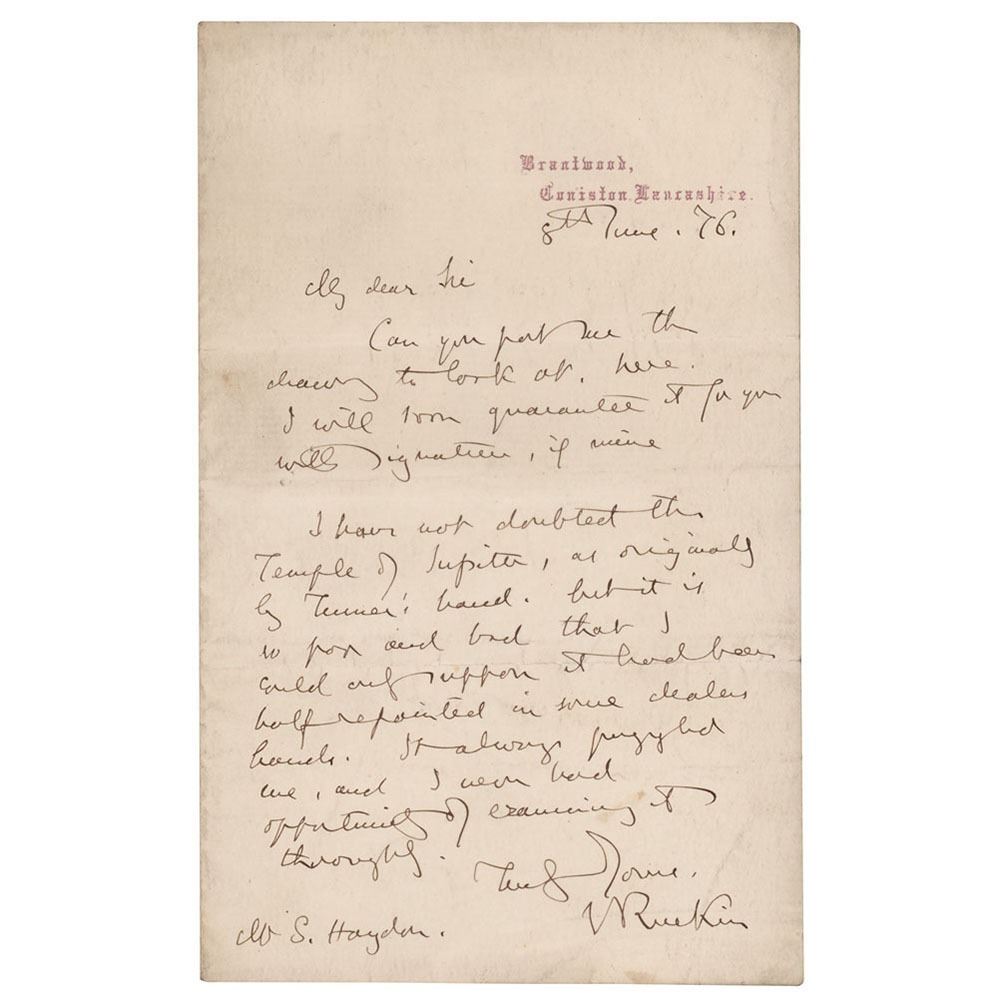 Brantwood,
Coniston Lancashire.
8th June. 76.
My dear Sir
Can you post me the
drawing to look at. here.
I will soon guarantee it for you
with signature, if mine
I have not doubted the
Temple of Jupiter, as originally
by Turner's hand. but it is
so poor and bad that I
could only suppose it had been
half repainted in some dealers
hands. It always puzzled
me, and I never had
opportunity of examining it
thoroughly.
Truly Yours.
J Ruskin
Mr S. Haydon.